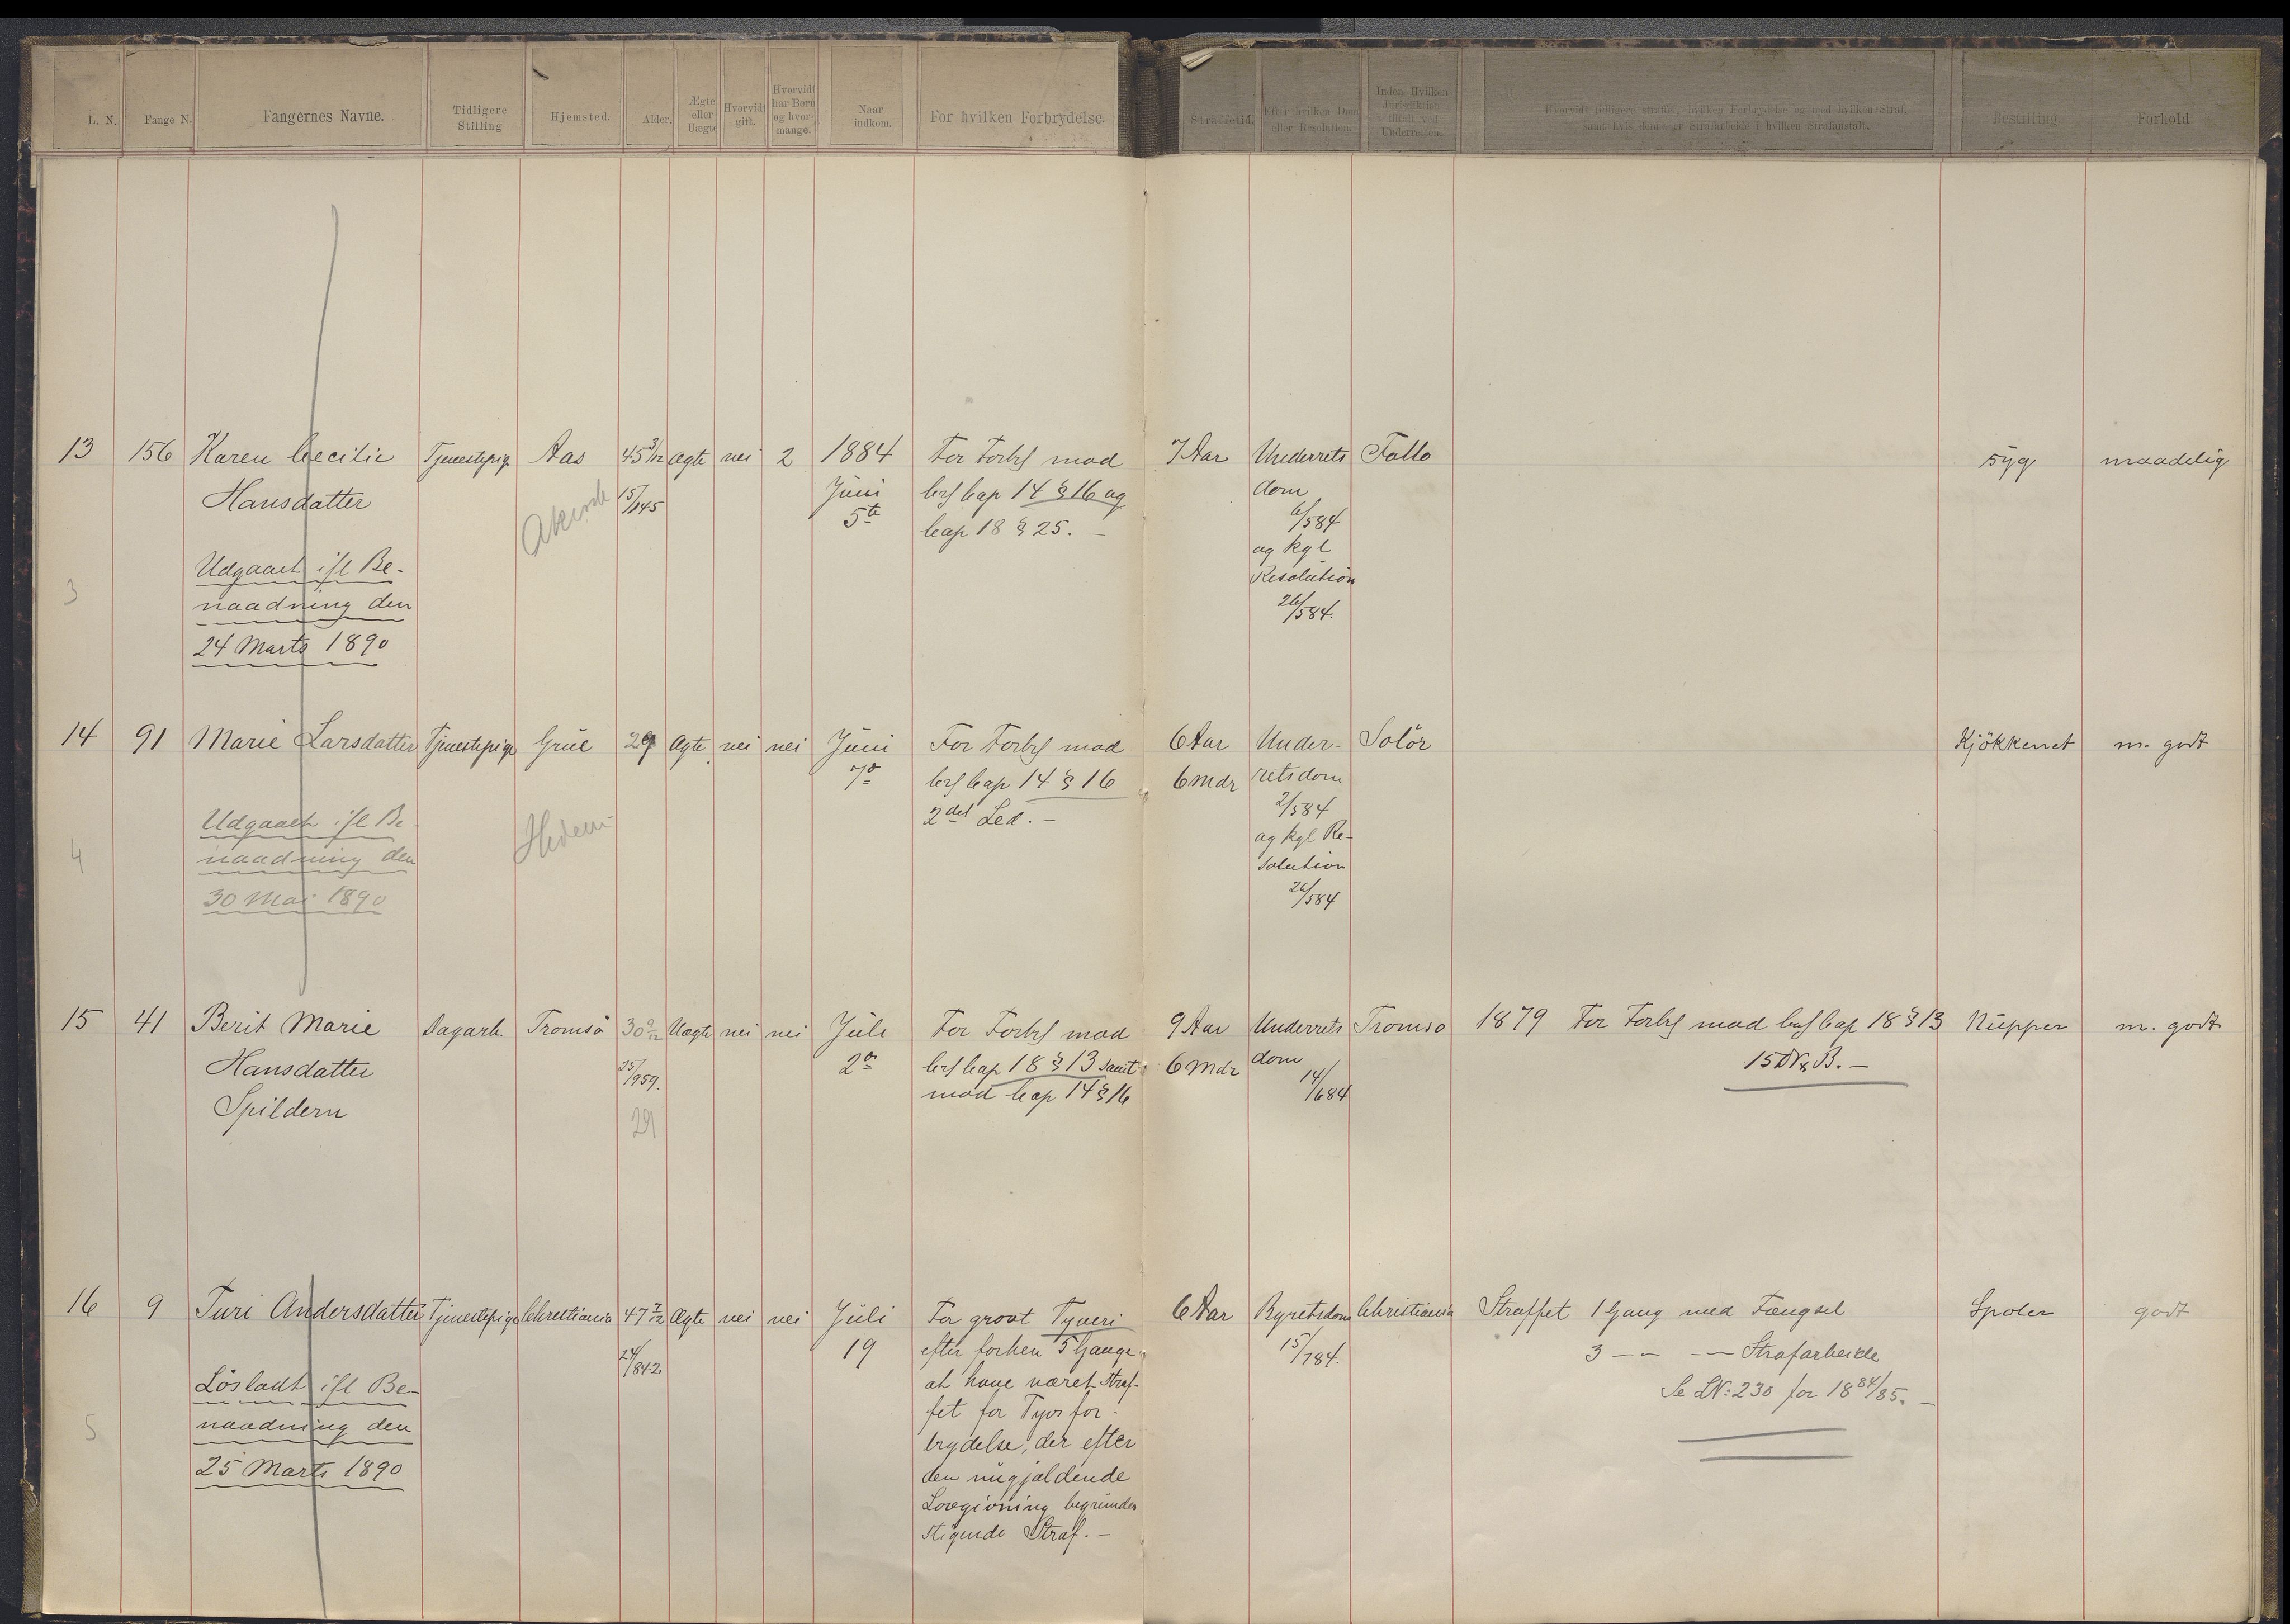 L. N. Fange N. Fangernes Navne. Tidligere Stilling Hjemsted. Alder. Ægte eller Uægte Hvorvidt gift. Hvorvidt har Børn og hvormange. Naar indkom. For hvilken Forbrydelse. Straffetid. Efter hvilken Dom eller Resolution. Inden Hvilken Jurisdiktion tiltalt ved Underretten. Hvorvidt tidligere straffet, hvilken Forbrydelse og med hvilken Straf, samt hvis denne er Strafarbeide i hvilken Strafanstalt. Bestilling Forhold
13 156 Karen Cecilie Tjenestepige Aas 45 3/12 ægte nei 2 1884 For Forbr mod 7 Aar Underrets Follo syg maadelig
Hansdatter 15/145 Juni Crl Cap 14 § 16 og dom
5te Cap 18 § 25. — 6/584
Udgaaet ifl Be- og kgl
3 naadning den Resolution
24 Marts 1890 26/584.
14 91 Marie Larsdatter Tjenestepige Grue 29 ægte nei nei Juni For Forbr mod 6 Aar Under- Solör Kjökkenet m. godt
7de Crl Cap 14 § 16 6 Mdr retsdom
Udgaaet ifl Be- 2det Led. — 2/584
4 naadning den Hedem- og kgl Re-
30 Mai 1890 solution
26/584
15 41 Berit Marie Dagarb. Tromsö 30 9/12 Uægte nei nei Juli For Forbr mod 9 Aar Underrets Tromsö 1879 For Forbr mod Crl Cap 18 § 13 Nupper m. godt
Hansdatter 25/959. 2den Crl Cap 18 § 13 samt 6 Mdr dom 15 D V & B. —
Spildern 29 mod Cap 14 § 16 14/684
16 9 Turi Andersdatter Tjenestepige Christiania 47 7/12 ægte nei nei Juli For grovt Tyveri 6 Aar Byretsdom Christiania Straffet 1 Gang med Fængsel Spoler godt
24/842 19 efter forhen 5 Gange 15/784. 3 — — Strafarbeide
Lösladt ifl Be- at have været straf- Se LN: 230 for 1884/85. —
5 naadning den fet for Tyvsfor-
25 Marts 1890 brydelse, der efter
den nugjældende
Lovgivning begrunder
stigende Straf. —